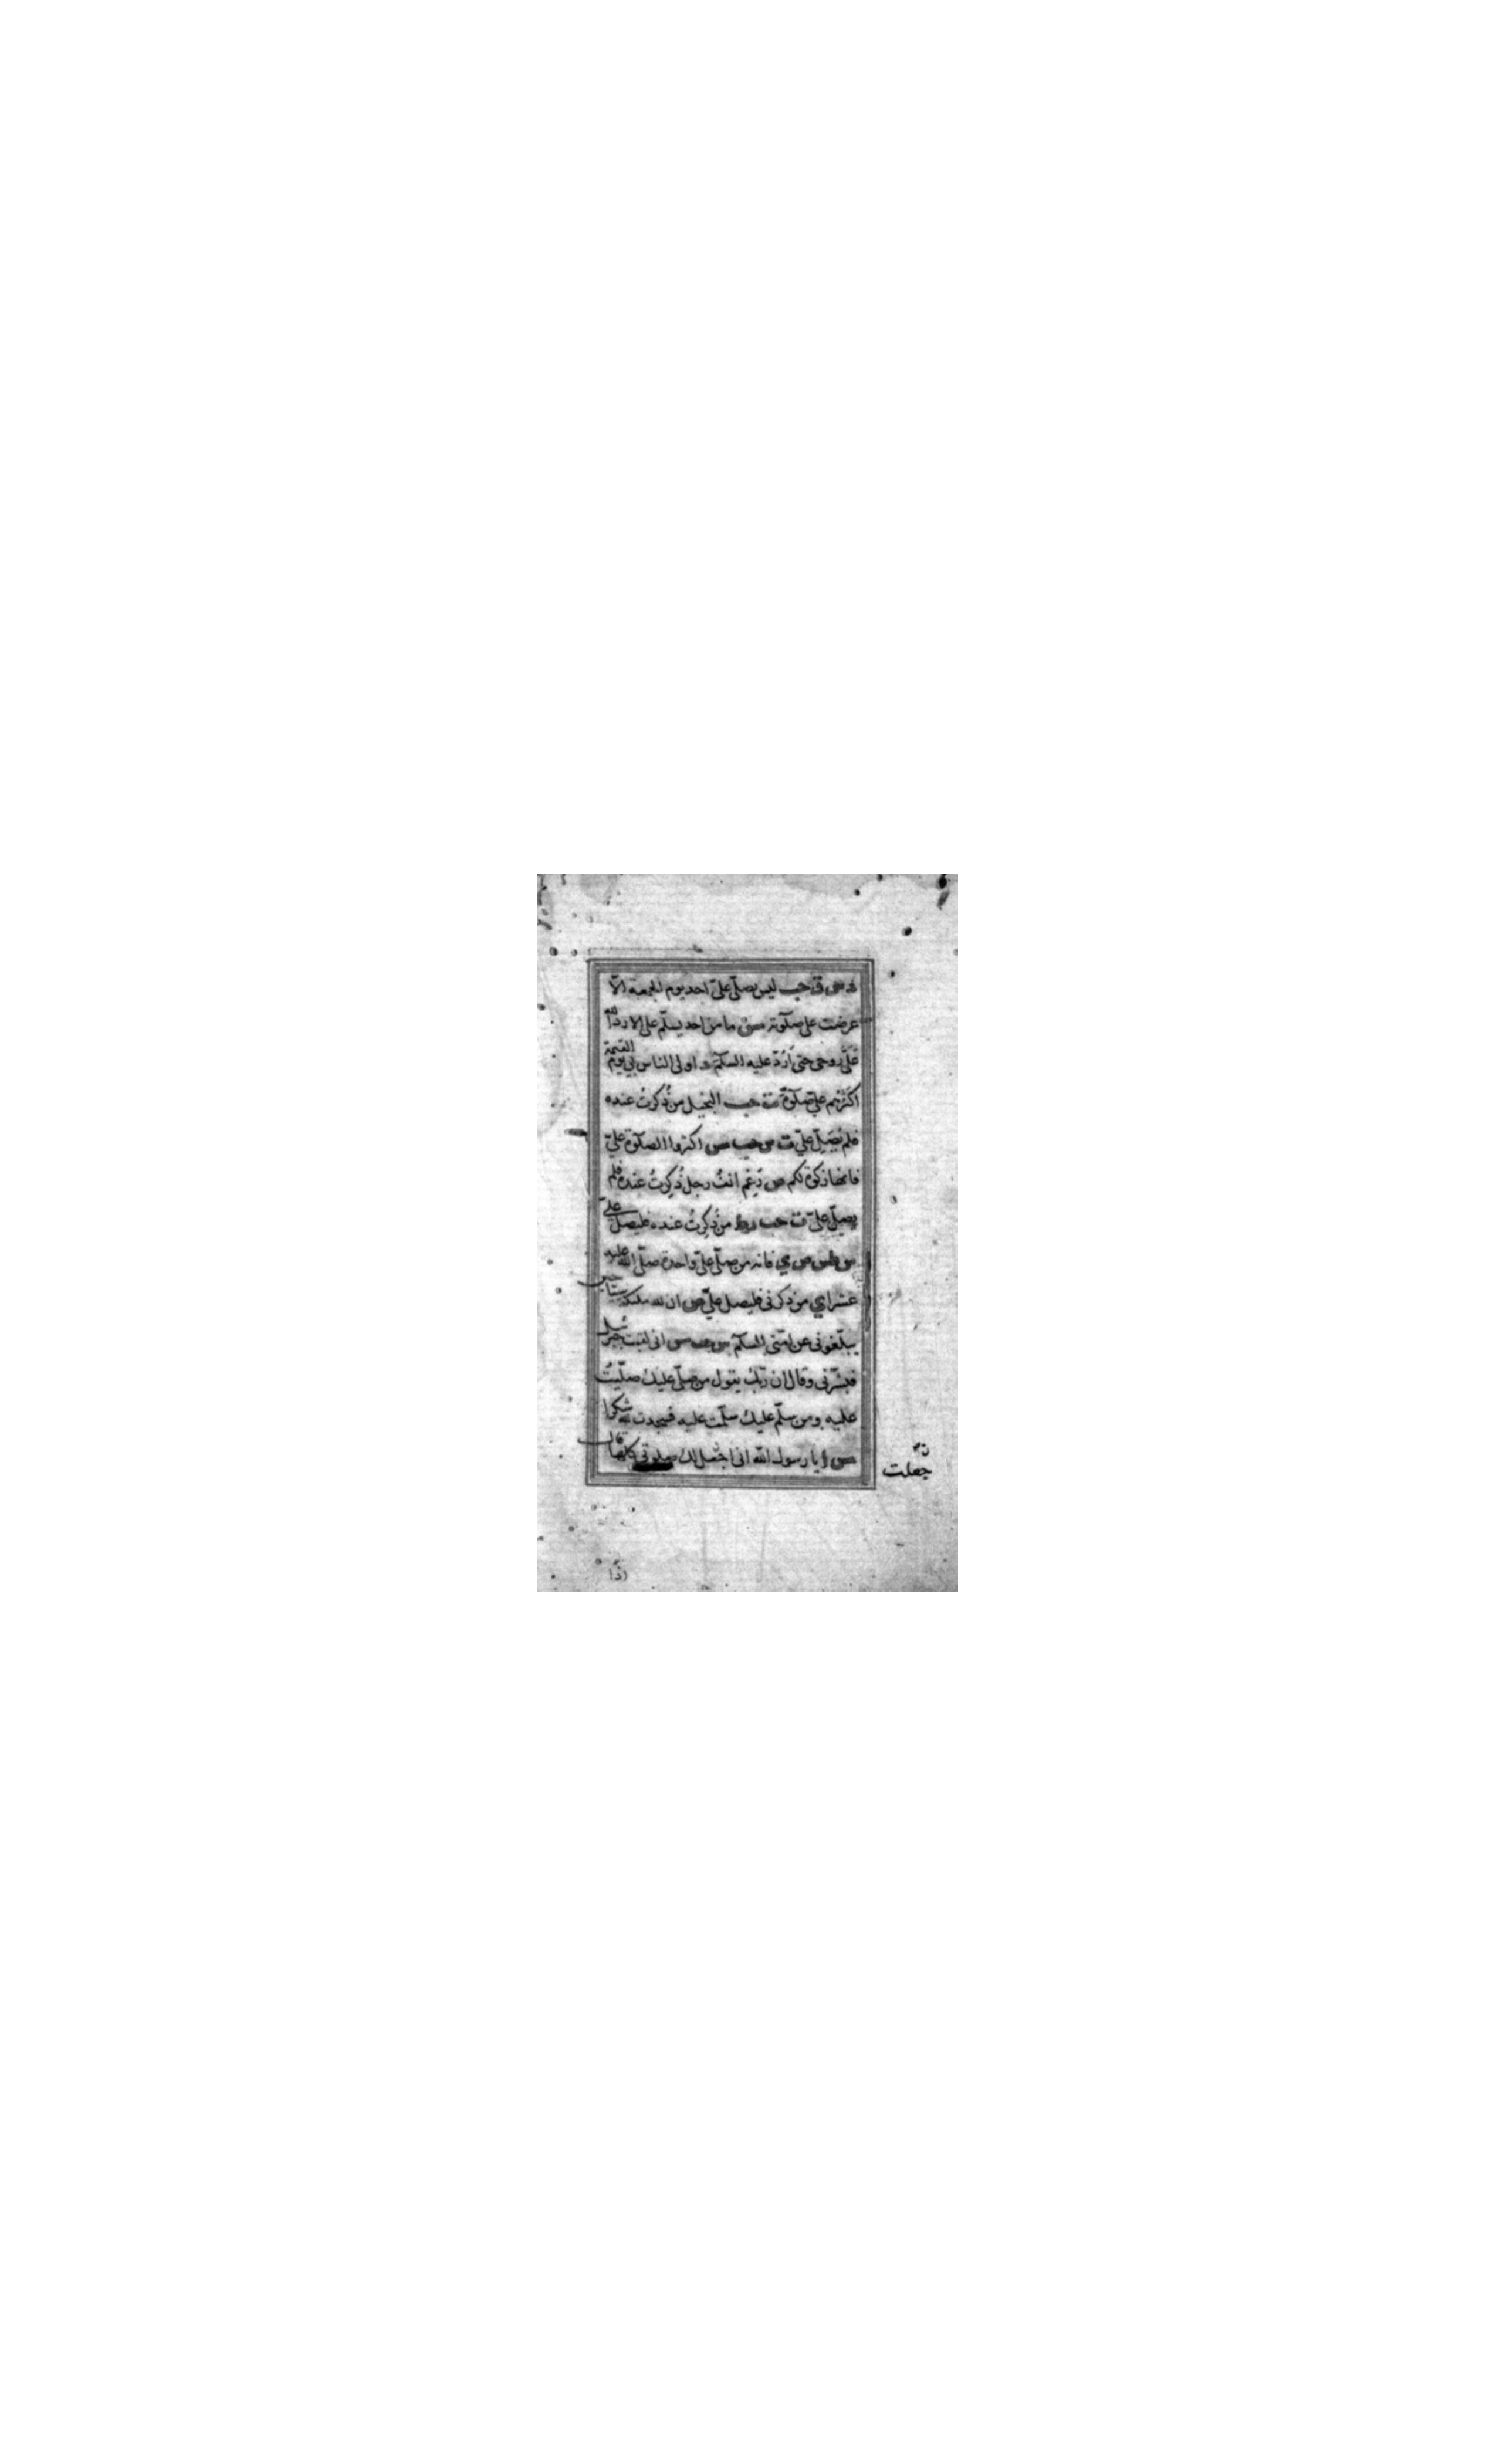 د س ق حب ليس يصلّي عليّ احد يوم الجمعة الّا
عرضت علي صلوته مس ما من احد يسلّم علي الا ردّ الله
عَلَيَّ روحي حتي اَرُدَّ عليه السلام د اولي الناس بي يوم القيمة
اكثرهم علي صلوةً ت حب البخيل من ذُكِرتُ عنده
فلم يُصَلِّ عليّ ت س حب مس اكثروا الصلوة عليّ
فانها زكوة لكم ص رَغِم انفُ رجل ذُكِرتُ عنده فلم
يصلّ عليّ ت حب من ذُكِرتُ عنده فليصل عليّ
س طس ص ي فانه من صلّي عليّ واحدة صلّي الله عليه
عشرا ي من ذكرني فليصل عليّ ص ان لله ملئكة سياحين
يبلّغوني عن امّتي السلام س حب مس اني لقيت جبرئيل
فبشّرني وقال ان ربّك يقول من صلّي عليك صلّيتُ
عليه ومن سلّم عليك سلّمت عليه فسجدت لله شكرا
مس ا يا رسول الله اني اجعل لك صلوتي كلها قال
جعلت
اذًا